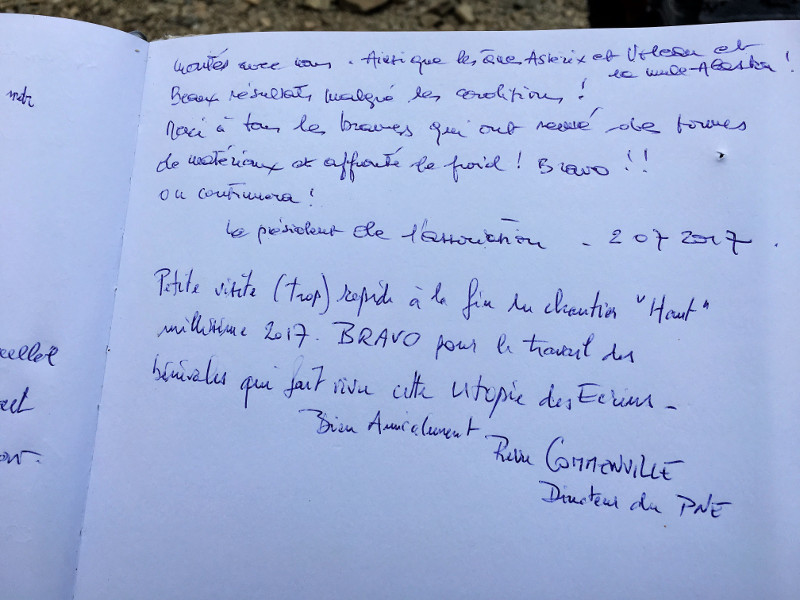 montés avec nous. Ainsi que les ânes Astérix et Volcan et
la mule Alaska !
Beaux résultats malgré les conditions !
Merci à tous les braves qui ont remué des tonnes
de matériaux et affronté le froid ! Bravo !!
on continuera !
Le président de l'association - 2 07 2017.
Petite visite (trop) rapide à la fin du chantier "Haut"
millésime 2017. BRAVO pour le travail des
bénévoles qui fait vivre cette utopie des Ecrins -
Bien Amicalement
Pierre COMMENVILLE
Directeur du PNE